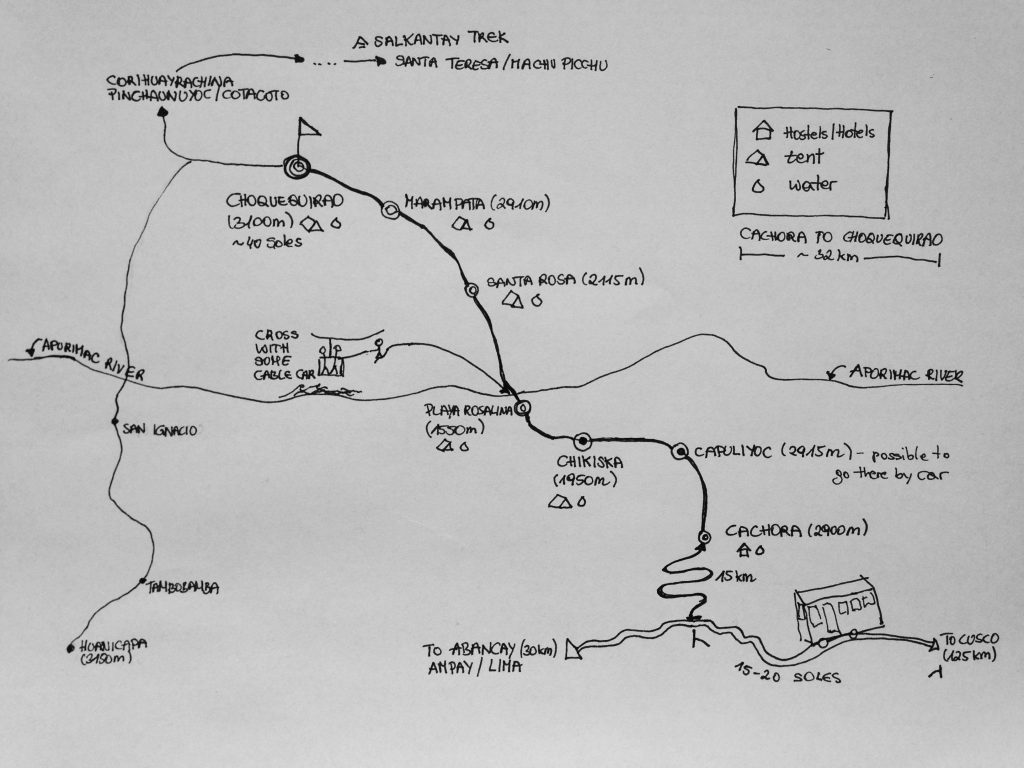 SALKANTAY TREK
SANTA TERESA / MACHU PICCHU
CORIHUAYRACHINA
PINCHAUNUYOC / COTACOTO
Hostels/Hotels
tent
water
CACHORA TO CHOQUEQUIRAO
~ 32 km
CHOQUEQUIRAO
(3100m)
~40 Soles
MARAMPATA (2910m)
SANTA ROSA (2115m)
CROSS
WITH
SOME
CABLE CAR
APORIMAC RIVER
APORIMAC RIVER
PLAYA ROSALINA
(1550m)
SAN IGNACIO
CHIKISKA
(1950m)
CAPULIYOC (2915m) - possible to
go there by car
CACHORA (2900m)
15 km
TAMBOBAMBA
HUANICAPA
(3150m)
TO ABANCAY (30km)
AMPAY / LIMA
15-20 SOLES
TO CUSCO
(125 km)